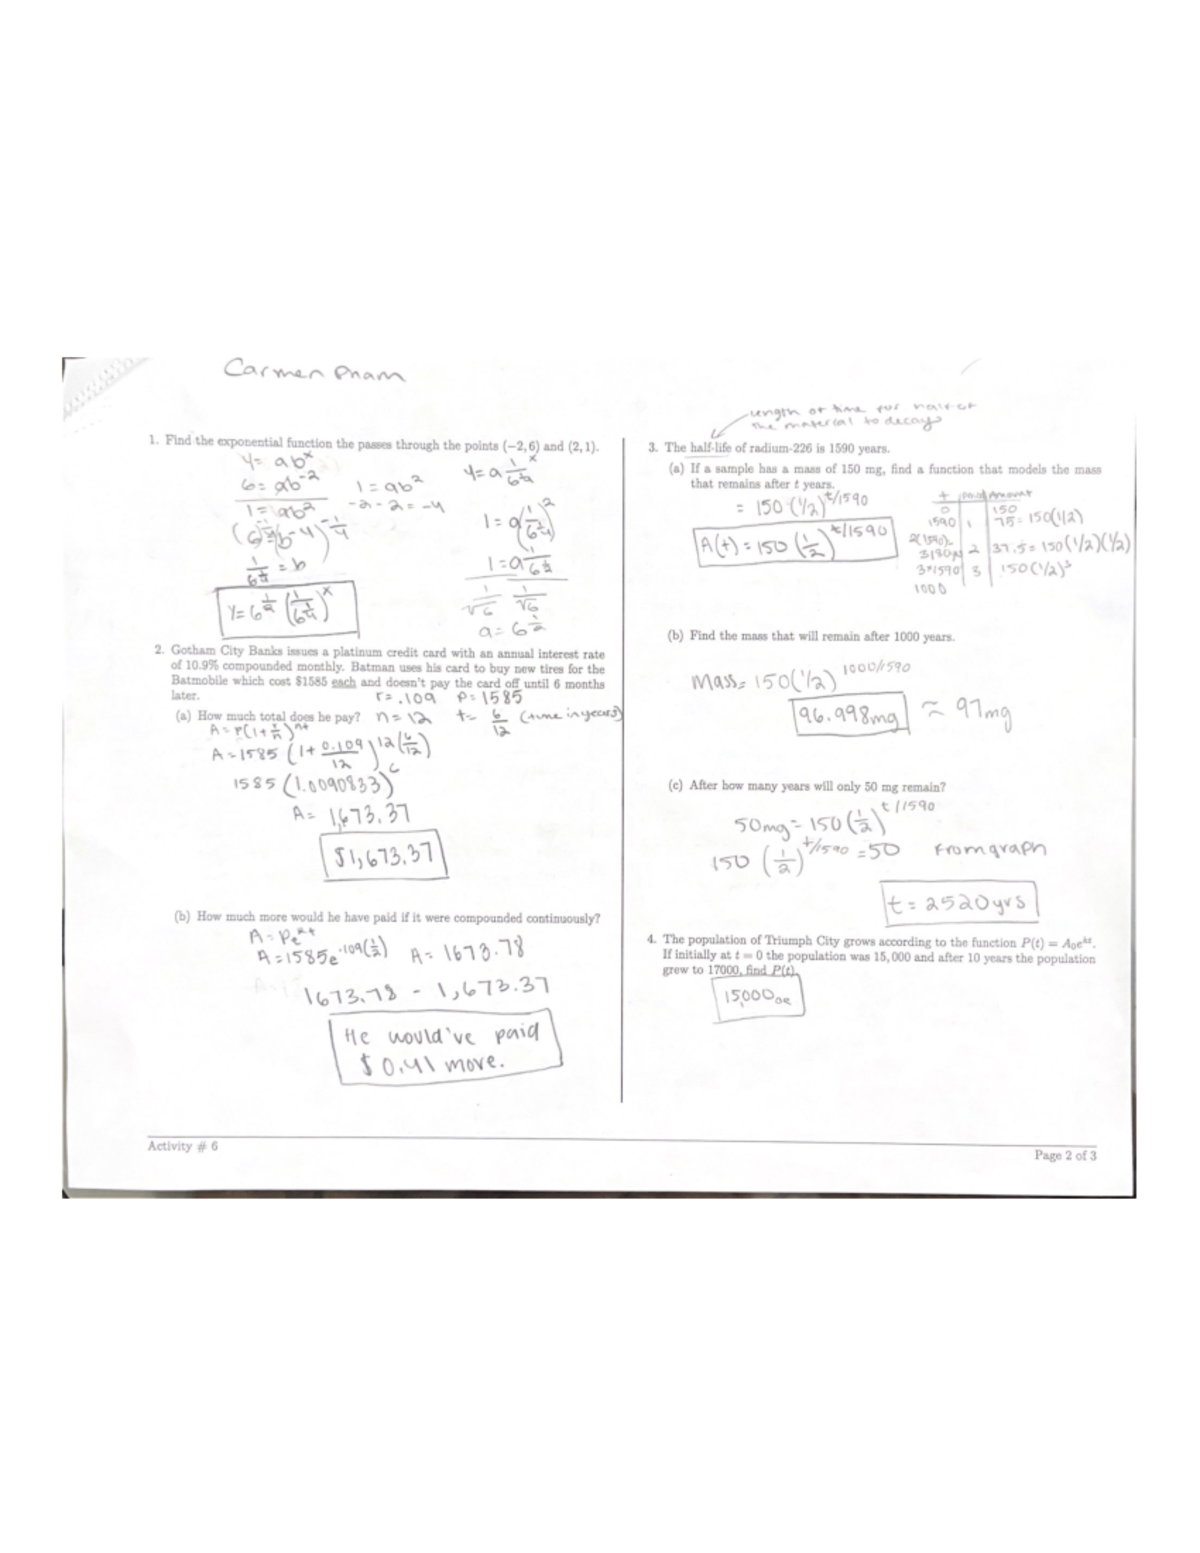 Carmen Pham
1. Find the exponential function the passes through the points (−2, 6) and (2, 1).
y = ab^x
6 = ab^-2
1 = ab^2
1 = ab^2
-2 - 2 = -4
(6)^-1/4 = (b^-4)^-1/4
1/6^1/4 = b
y = 6^1/2 (1/6^1/4)^x
y = a 1/6^1/4^x
1 = a(1/6^1/4)^2
1 = a 1/6^1/2
1/√6 1/√6
a = 6^1/2
2. Gotham City Banks issues a platinum credit card with an annual interest rate
of 10.9% compounded monthly. Batman uses his card to buy new tires for the
Batmobile which cost $1585 each and doesn't pay the card off until 6 months
later. r = .109 P = 1585
(a) How much total does he pay? n = 12 t = 6/12 (time in years)
A = P(1 + r/n)^nt
A = 1585 (1 + 0.109/12)^12(6/12)
1585 (1.0090833)^6
A = 1,673.37
$1,673.37
(b) How much more would he have paid if it were compounded continuously?
A = Pe^rt
A = 1585e^.109(1/2) A = 1673.78
1673.78 - 1,673.37
He would've paid
$ 0.41 more.
length of time for half of
the material to decay
3. The half-life of radium-226 is 1590 years.
(a) If a sample has a mass of 150 mg, find a function that models the mass
that remains after t years.
= 150 (1/2)^t/1590
A(t) = 150 (1/2)^t/1590
t Amount
0 150
1590 1 75 = 150(1/2)
2(1590)=
3180 2 37.5 = 150(1/2)(1/2)
3*1590 3 150(1/2)^3
1000
(b) Find the mass that will remain after 1000 years.
Mass = 150(1/2)^1000/1590
96.998mg ≈ 97mg
(c) After how many years will only 50 mg remain?
50mg = 150 (1/2)^t/1590
150 (1/2)^t/1590 = 50 From graph
t = 2520 yrs
4. The population of Triumph City grows according to the function P(t) = A₀e^kt.
If initially at t = 0 the population was 15,000 and after 10 years the population
grew to 17000, find P(t).
15,000
Activity # 6
Page 2 of 3